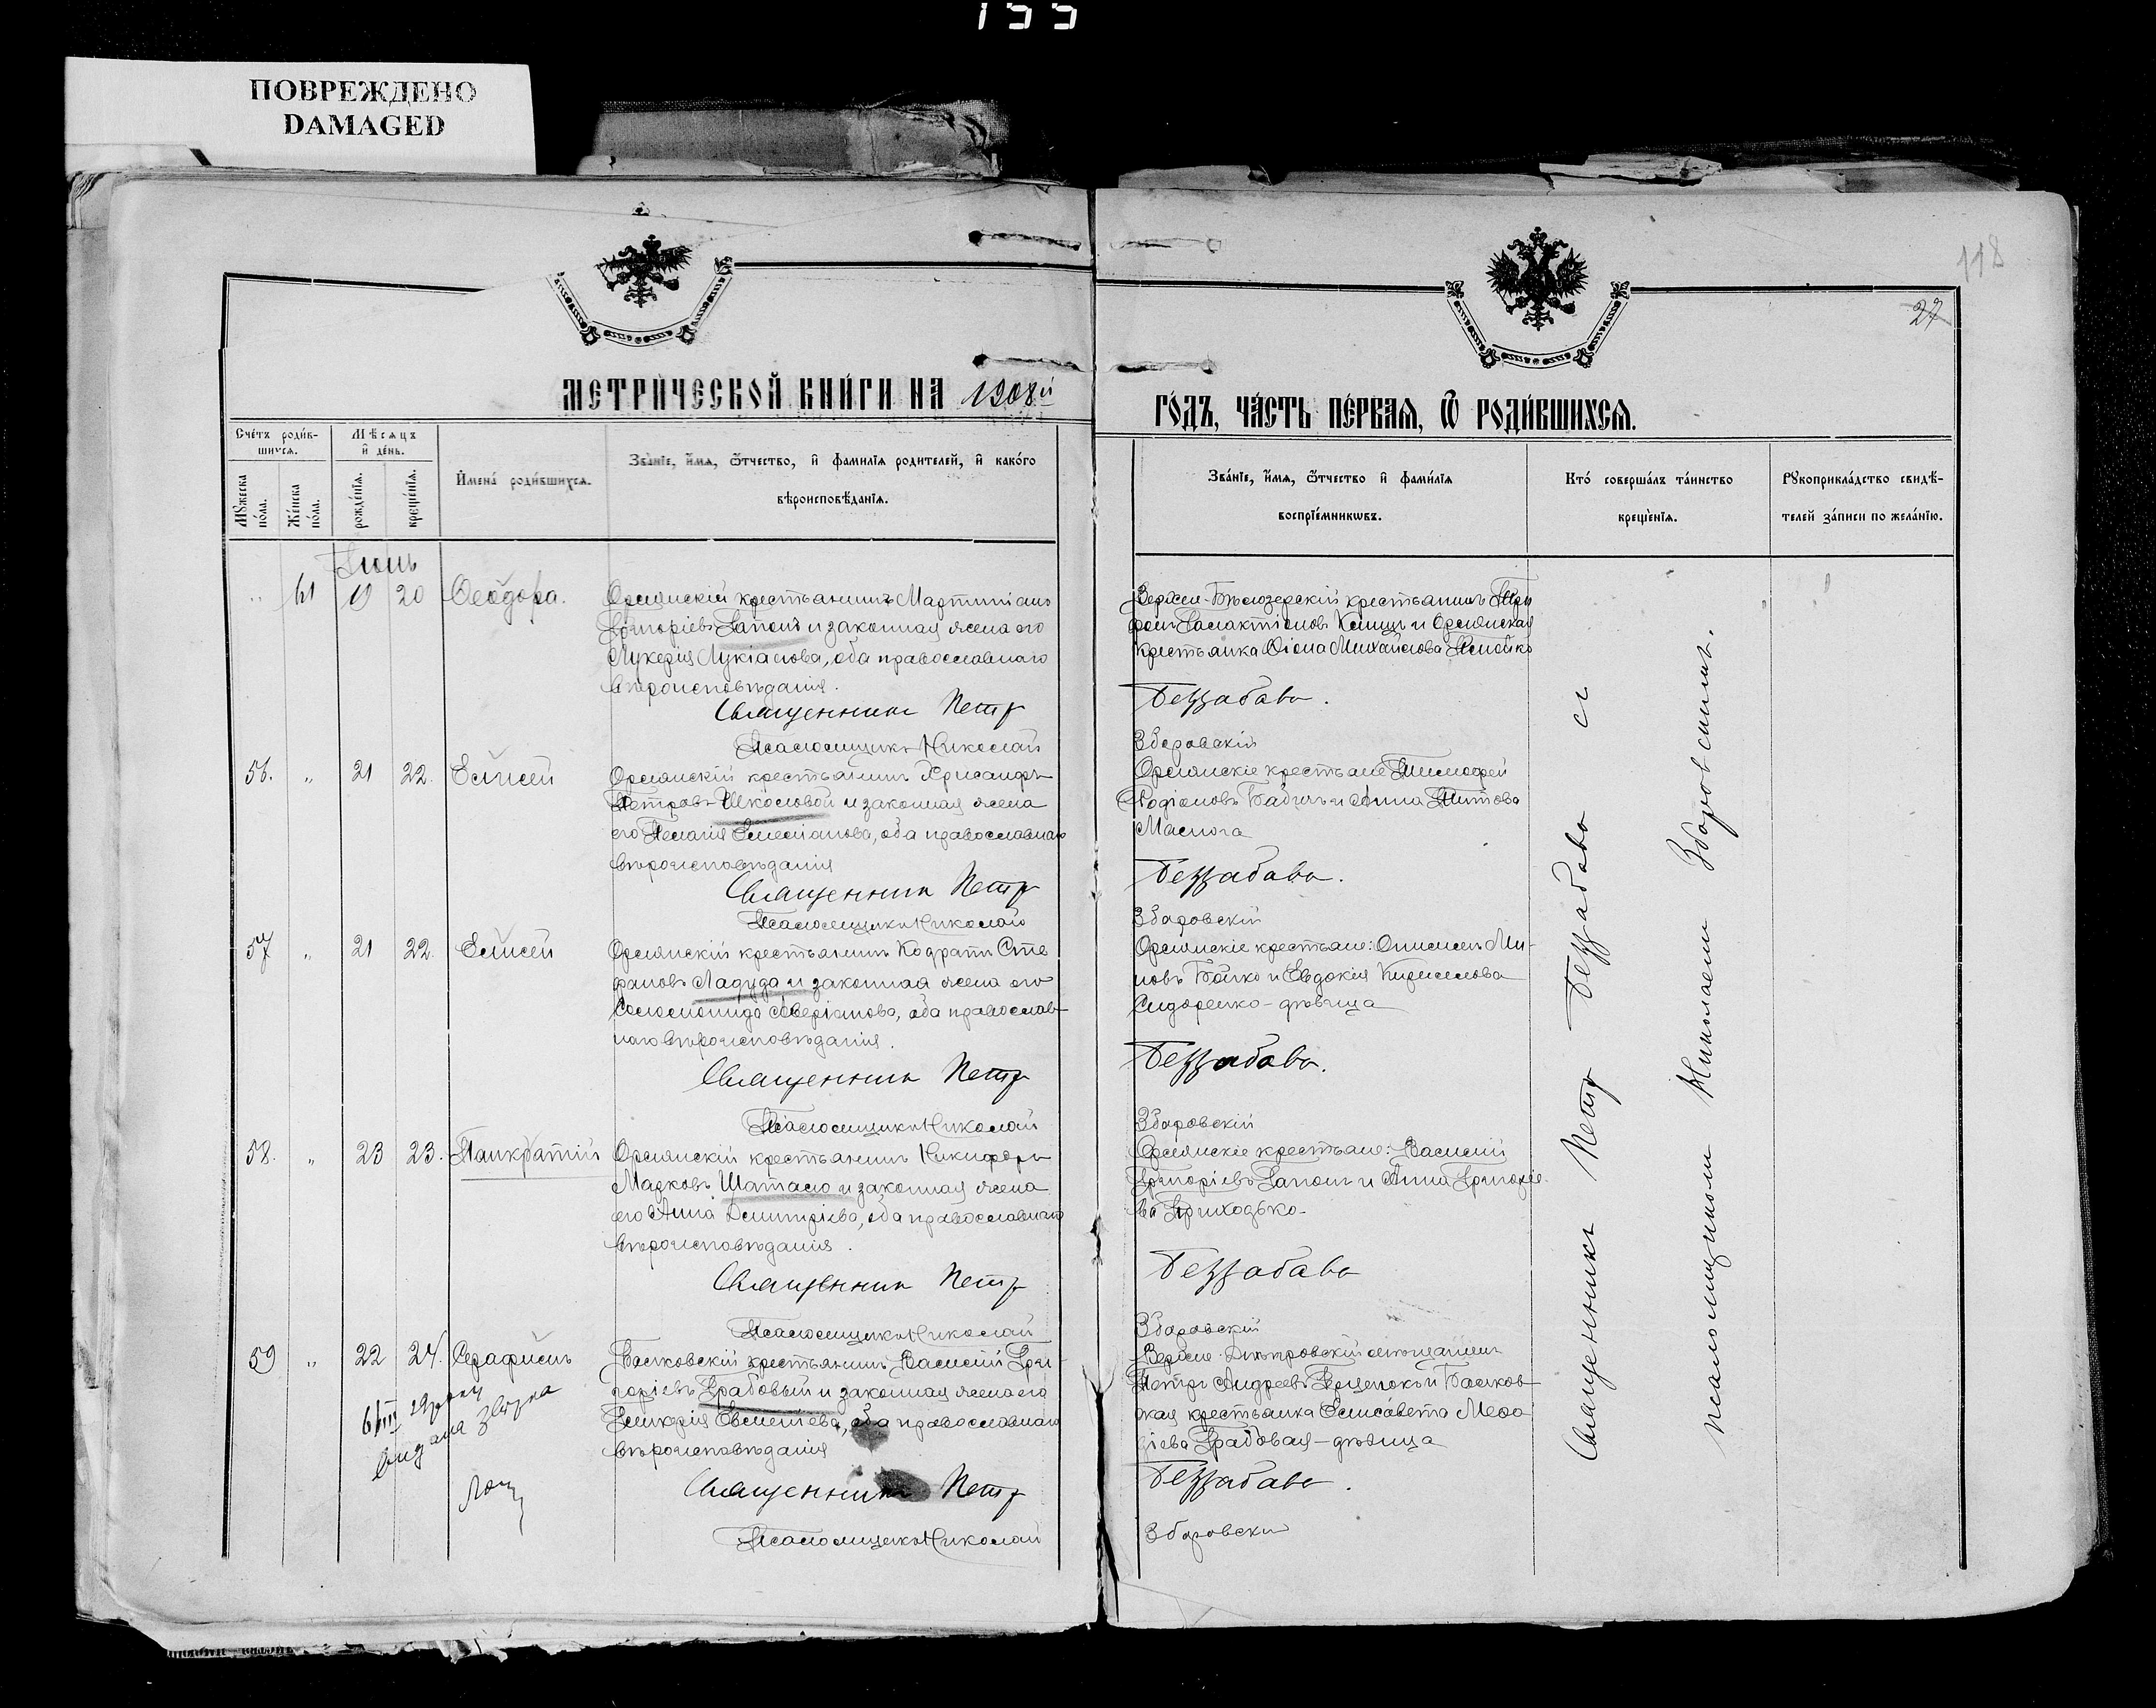 155
ПОВРЕЖДЕНО
DAMAGED
118
27
МЕТРИЧЕСКОЙ КНИГИ НА 1908й
ГОДЪ, ЧАСТЬ ПЕРВАЯ, Ѿ РОДИВШИХСЯ.
Счетъ родив-
шихся.
Мѣсяцъ
и день.
Мужеска
пола.
Женска
пола.
рожденія.
крещенія.
Имена родившихся.
Званіе, имя, ѿтчество, и фамилія родителей, и какого
вѣроисповѣданія.
Званіе, имя, ѿтчество и фамилія
воспріемниковъ.
Кто совершалъ таинство
крещенія.
Рукоприкладство свидѣ-
телей записи по желанію.
" 61 19 20 Ѳеодора.
Орлянскій крестьянинъ Мартиніанъ
Григоріевъ Гапонъ и законная жена его
Лукерія Лукіанова, оба православнаго
вѣроисповѣданія.
Священникъ Петр
Псаломщикъ Николай
Верхне-Бѣлозерскій крестьянинъ Три
фонъ Галактіоновъ и Орлянская
крестьянка Михайлова
Беззабава.
Зборовскій
56. " 21 22. Елисей
Орлянскій крестьянинъ Хрисанфъ
Петровъ Школовой и законная жена
его Пелагія Емеліанова, оба православнаго
вѣроисповѣданія
Священник Петр
Псаломщикъ Николай
Орлянскіе крестьяне Тимофей
Родіоновъ Бабичъ и Анна Титова
Беззабава.
Зборовскій
57 " 21 22. Елисей
Орлянскій крестьянинъ Кодратъ Сте
фановъ Ладуда и законная жена его
Соломонида Аверіанова, оба православ-
наго вѣроисповѣданія.
Священник Петр
Псаломщикъ Николай
Орлянскіе крестьяне: Ми-
новъ Бойко и Евдокія Кириллова
Сидоренко - дѣвица
Беззабава.
Зборовскій
58. " 23 23. Панкратій
Орлянскій крестьянинъ Никифоръ
Марковъ Шатало и законная жена
его Анна Димитріева, оба православнаго
вѣроисповѣданія.
Священник Петр
Псаломщикъ Николай
Орлянскіе крестьяне: Василій
Григоріевъ Гапонъ и Анна Григоріе-
ва Приходько.
Беззабава
Зборовскій
59 " 22 24. Серафимъ
Балковскій крестьянинъ Василій Гри
горіевъ Грабовый и законная жена его
Гликерія Евсеніева, оба православнаго
вѣроисповѣданія
Священник Петр
Псаломщикъ Николай
Верхне-Днѣпровскій мѣщанинъ
Петръ Андреевъ и Балков
ская крестьянка Елисавета Меѳо
діева Грабовая - дѣвица
Беззабава.
Зборовскій
Священникъ Петр Беззабава съ
псаломщиком Николаем Зборовским.